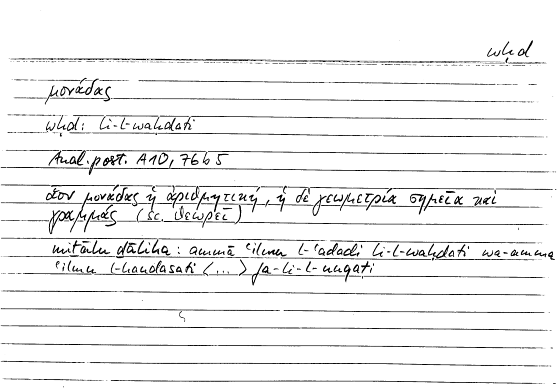 wḥd
μονάδας
wḥd: li-l-waḥdati
Anal. post. A10, 76b5
οἷον μονάδας ἡ ἀριθμητική, ἡ δὲ γεωμετρία σημεῖα καὶ
γραμμάς (sc. θεωρεῖ)
miṯālu ḏālika: ammā ʿilmu l-ʿadadi li-l-waḥdati wa-ammā
ʿilmu l-handasati (...) fa-li-l-nuqaṭi